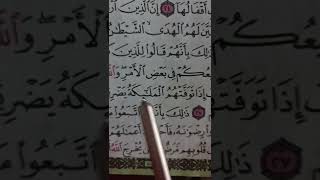 أَقْفَالُهَآ ٢٤ إِنَّ ٱلَّذِينَ
لَهُمُ ٱلْهُدَى ٱلشَّيْطَٰنُ
ذَٰلِكَ بِأَنَّهُمْ قَالُوا۟ لِلَّذِينَ
فِى بَعْضِ ٱلْأَمْرِ وَٱللَّهُ
إِذَا تَوَفَّتْهُمُ ٱلْمَلَٰٓئِكَةُ
٢٧ ذَٰلِكَ بِأَنَّهُمُ ٱتَّبَعُوا۟
رِضْوَٰنَهُۥ فَأَحْبَطَ أَعْمَٰلَهُمْ
قُلُوبِهِم مَّرَضٌ أَن لَّن يُخْرِجَ ٱللَّهُ